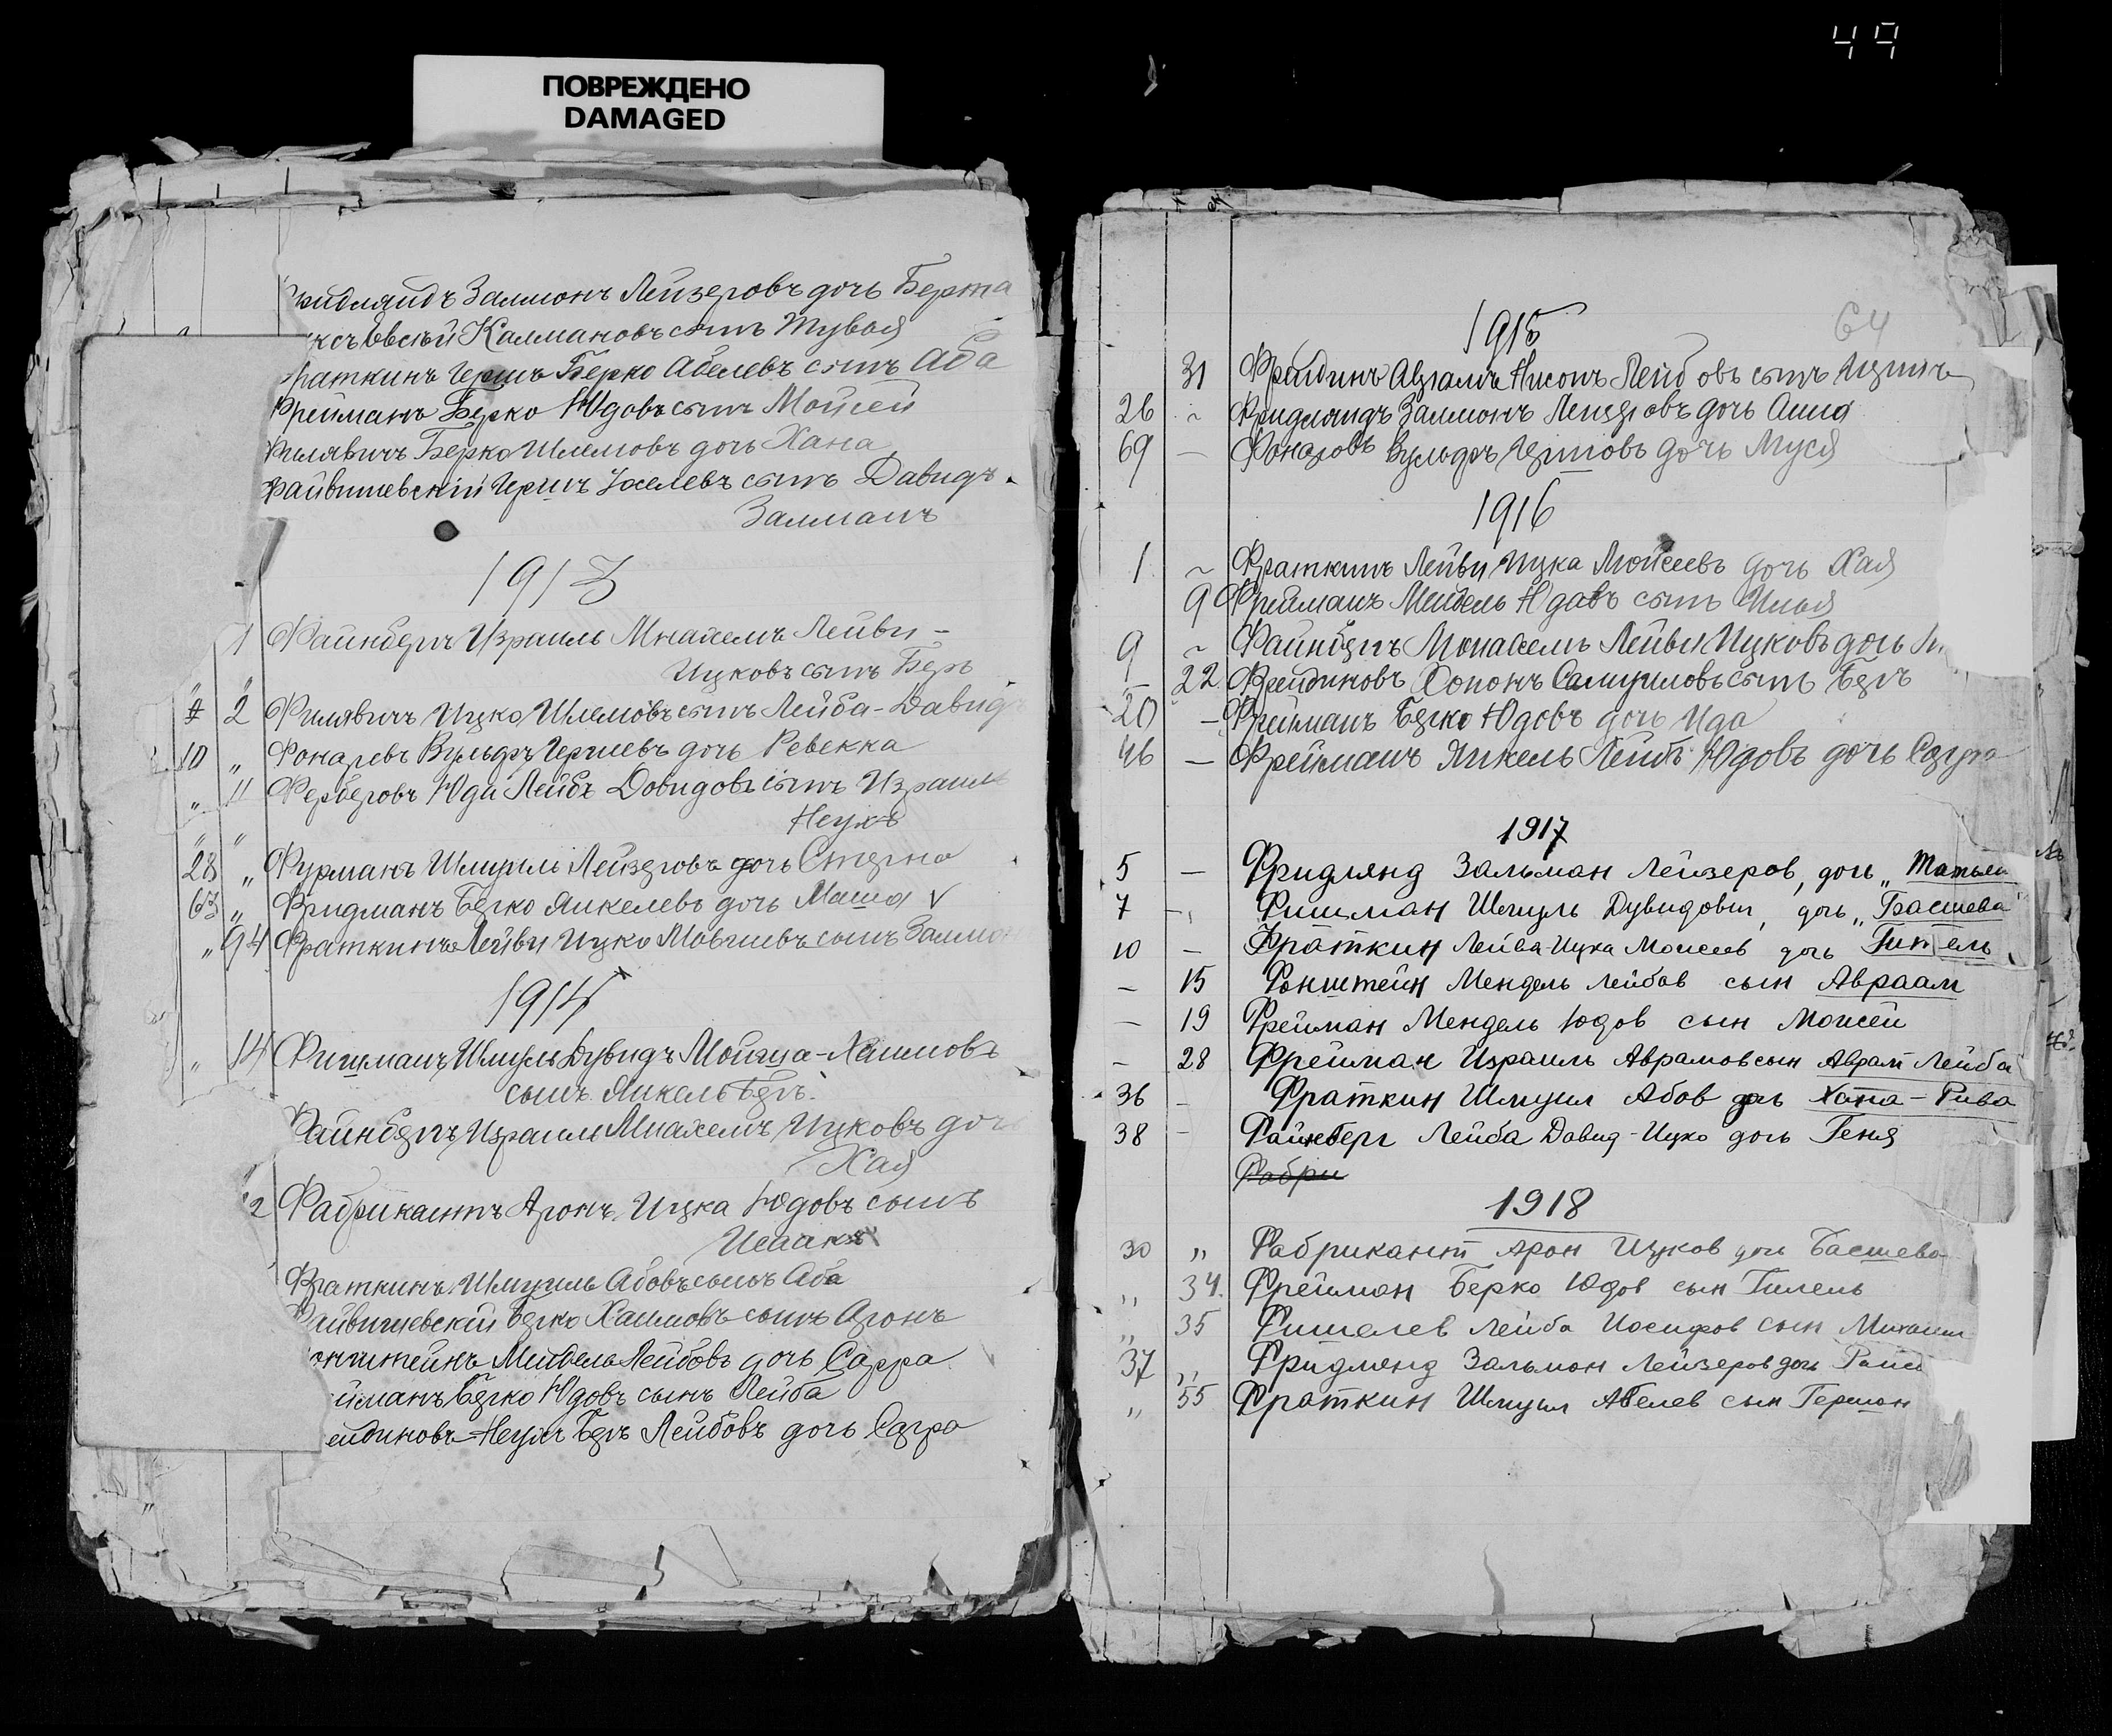 49
ПОВРЕЖДЕНО
DAMAGED
Залмонъ Лейзеровъ дочь Берта
Овсѣй Калмановъ сынъ Тувья
Фраткинъ Гершъ Берко Абелевъ сынъ Аба
Фрейманъ Берко Юдовъ сынъ Мойсей
Филявичъ Берко Шлемовъ дочь Хана
Файвишевскій Гершъ Іоселевъ сынъ Давидъ
Залманъ
1913
1 Файнбергъ Израиль Мнахемъ Лейви-
Ицковъ сынъ Беръ
" 2 Филявичъ Ицко Шлемовъ сынъ Лейба-Давидъ
10 " Фонаревъ Вульфъ Гершевъ дочь Ревекка
" 11 Ферберовъ Юда Лейбъ Довидовъ сынъ Израиль
Неухъ
28 " Фурманъ Шмуиль Лейзеровъ дочь Стерна
63 " Фридманъ Берко Янкелевъ дочь Маша v
" 94 Фраткинъ Лейви Ицко Мовшевъ сынъ
1914
" 14 Фишманъ Шмуль Дувидъ -Хаимовъ
сынъ Янкель Беръ.
Файнбергъ Израиль Мнахемъ Ицковъ дочь
Хая
2 Фабрикантъ Аронъ Ицка Юдовъ сынъ
Исаакъ
Фраткинъ Шмуиль Абовъ сынъ Аба
Файвишевскій Берко Хаимовъ сынъ Аронъ
онштейнъ Мендель Лейбовъ дочь Сарра
йманъ Берко Юдовъ сынъ Лейба
ейдиновъ Неухъ Беръ Лейбовъ дочь Сарра
1915
64
31 Фрейдинъ Абрамъ Нисонъ Лейбовъ сынъ
26 ~ Фридляндъ Залмонъ Лейзеровъ дочь
69 — Фонаровъ Вульфъ Гершовъ дочь Муся
1916
1 ~ Фраткинъ Лейви Ицка Мойсеевъ дочь Хая
9 Фрейманъ Мендель Юдовъ сынъ Илья
9 ~ Файнбергъ Монахемъ Лейви Ицковъ дочь
— 22 Фрейдиновъ Хононъ Самуиловъ сынъ Беръ
20 — Фрейманъ Берко Юдовъ дочь Ида
46 — Фрейманъ Янкель Лейбъ Юдовъ дочь Сарра
1917
5 — Фридлянд Зальман Лейзеров, дочь „Татьяна
7 — Фишман Шмуль Дувидович, дочь „Басшева"
10 — Фраткин Лейва Ицка Моисеев дочь
— 15 Фонштейн Мендель Лейбов сын Авраам
— 19 Фрейман Мендель Юдов сын Моисей
— 28 Фрейман Израиль Аврамов сын Аврам Лейба
36 — Фраткин Шмуил Абов дочь Хана-Рива
38 — Файнберг Лейба Давид-Ицко дочь Геня
Фабри
1918
30 " Фабрикант Арон Ицков дочь Басшева
" 34. Фрейман Берко Юдов сын Гилель
" 35 Фишелев Лейба Иосифов сын Михаил
37 " Фридлянд Зальмон Лейзеров дочь
" 55 Фраткин Шмуил Абелев сын Герман